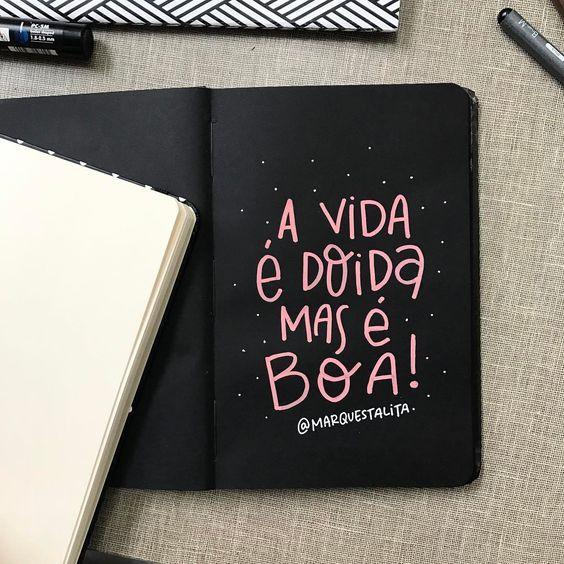 PC-5M
1.8-2.5 mm
A ViDA
é DOiDa
MAS é
BOA!
@MARQUESTALITA.